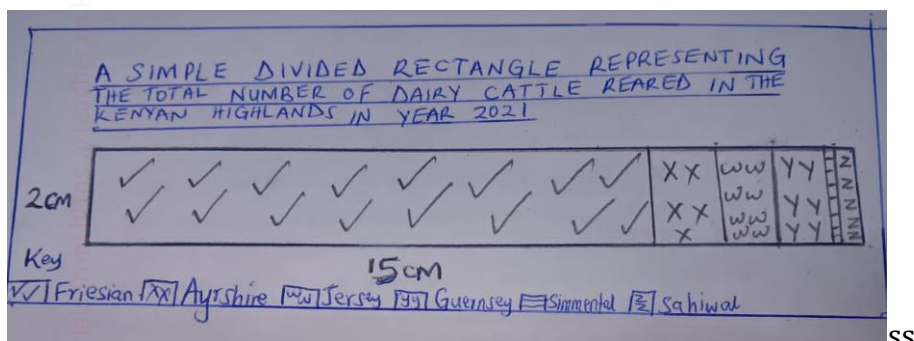 A SIMPLE DIVIDED RECTANGLE REPRESENTING
THE TOTAL NUMBER OF DAIRY CATTLE REARED IN THE
KENYAN HIGHLANDS IN YEAR 2021
XX WW YY N
WW N
2CM XX WW YY N
X WW YY N
Key
15CM
Friesian XX Ayrshire WW Jersey YY Guernsey Simmental Sahiwal
ss